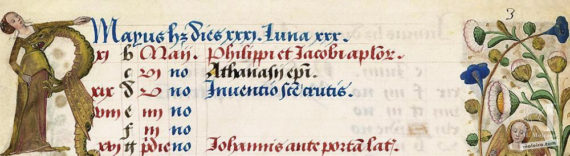 3
Mayus hz dies xxxi. Luna xxx.
xi b Maij. Philippi et Jacobi aplor.
c vi no Athanasij epi.
xix d v no Inventio scē crutis.
viii e iiij no
f iij no
xvi g pdie no Johannis ante portā lat.
moleiro.com